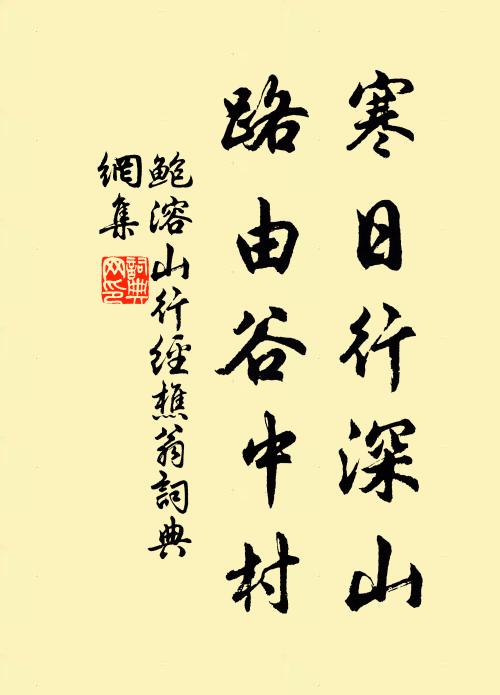 寒日行深山
路由谷中村
鲍溶山行經樵翁詞典
網集
詞典
网印